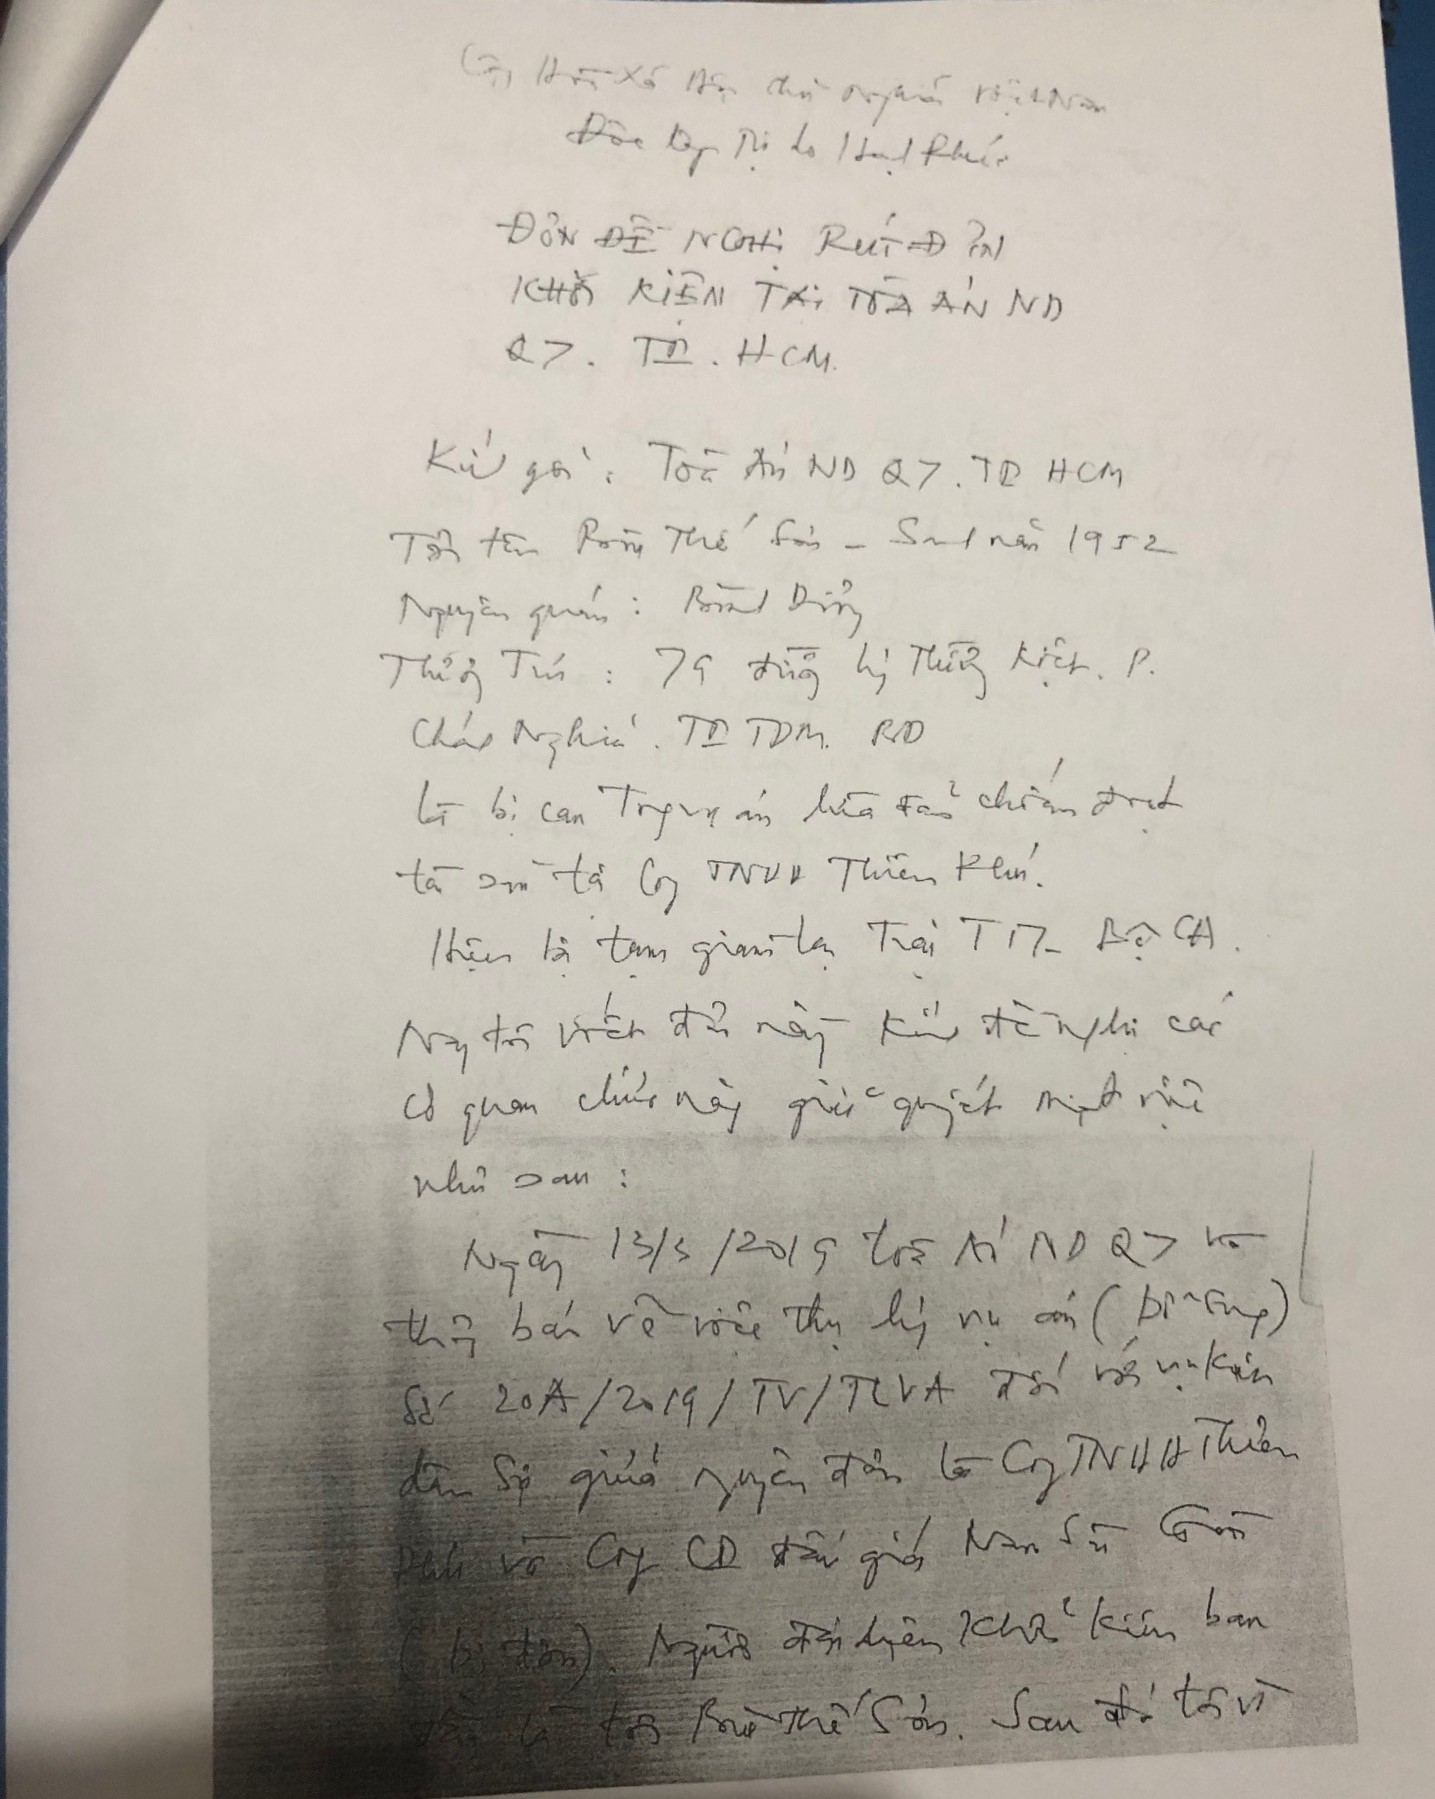 Cộng Hòa Xã Hội chủ nghĩa Việt Nam
Độc lập Tự do Hạnh Phúc
ĐƠN ĐỀ NGHỊ RÚT ĐƠN
KHỞI KIỆN TẠI TÒA ÁN ND
Q7. TP. HCM.
Kính gởi: Toà Án ND Q7. TP HCM
Tôi tên Thế Sơn - Sinh năm 1952
Nguyên quán: Bình Dương
Thường Trú: 79 đường Lý Thường Kiệt. P.
Chánh Nghĩa. TP TDM. BD
Là bị can Trong vụ án lừa đảo chiếm đoạt
tài sản tại Cty TNHH Thiên Phú.
Hiện bị tạm giam tại Trại T17 - Bộ CA.
Nay tôi viết đơn này kính đề nghị các
cơ quan chức năng giải quyết một việc
như sau:
Ngày 13/3/2019 toà Án ND Q7 có
thông báo về việc thụ lý vụ án
Số 20A/2019/TV/TLVA đối với vụ kiện
dân Sự giữa nguyên đơn là Cty TNHH Thiên
Phú và Cty CP đấu giá Nam Sài Gòn
(bị đơn). Người đại diện Khởi kiện ban
đầu là tôi Thế Sơn. Sau đó tôi vì